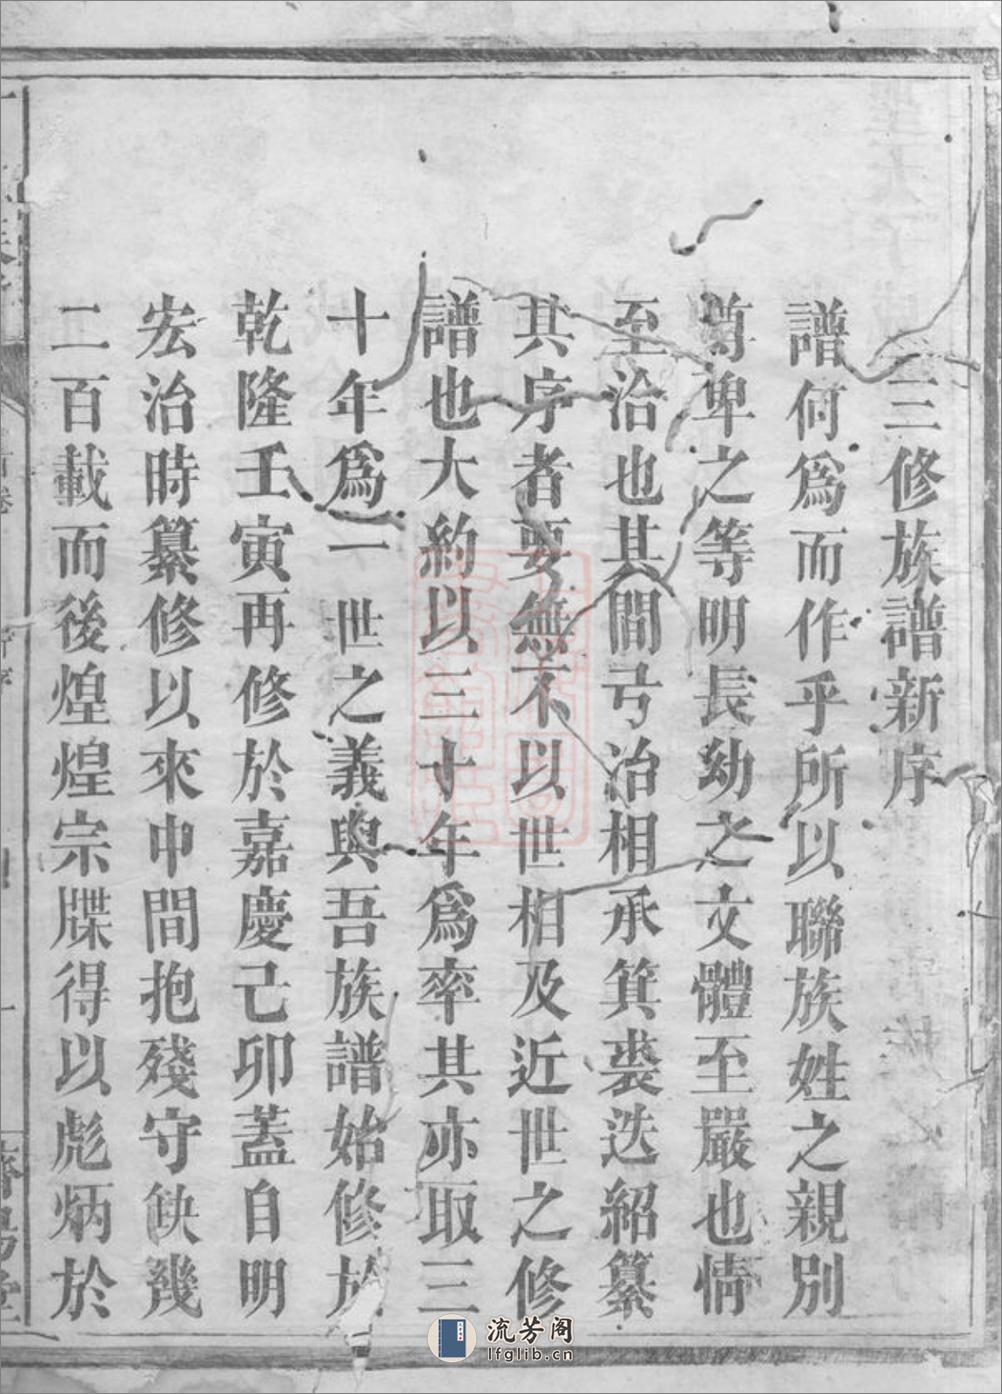 三修族譜新序
譜何爲而作乎所以聯族姓之親別
尊卑之等明長幼之文體至嚴也情
至洽也其間弓冶相承箕裘迭紹纂
其序者要無不以世相及近世之修
譜也大約以三十年爲率其亦取三
十年爲一世之義與吾族譜始修於
乾隆壬寅再修於嘉慶己卯蓋自明
宏治時纂修以來中間抱殘守缺幾
二百載而後煌煌宗牒得以彪炳於
首卷
一
濟陽堂
流芳阁
lfglib.cn